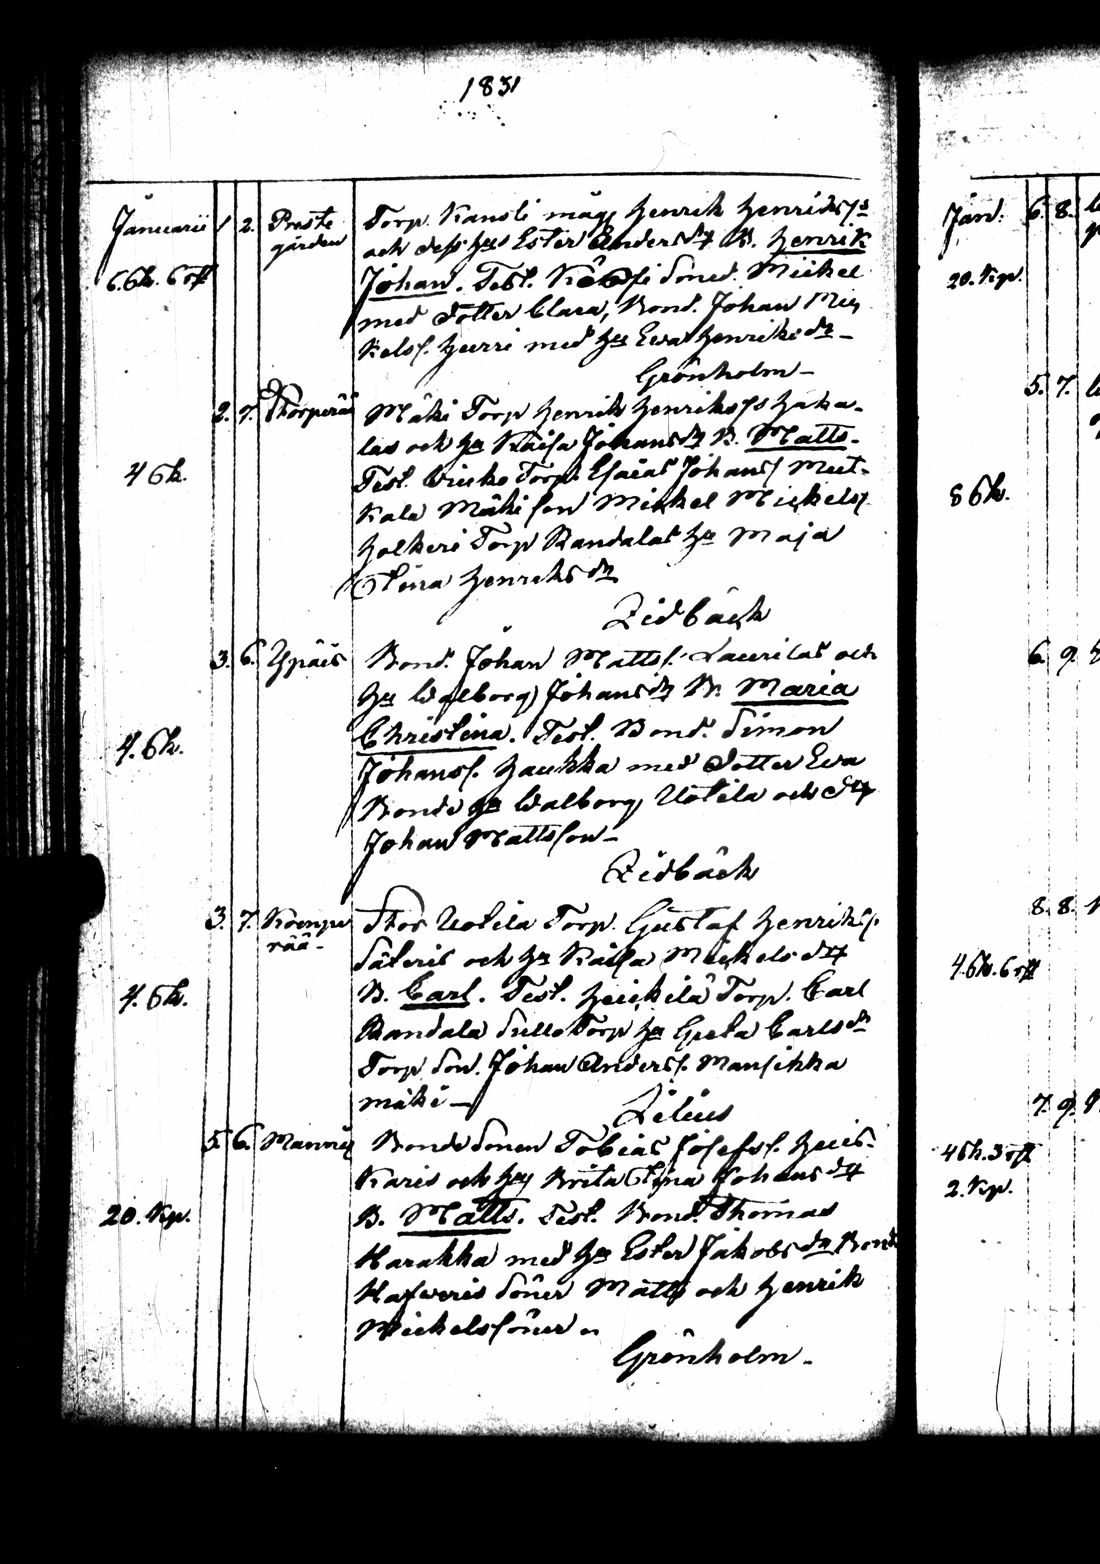 1831
Januarii 1 2. Prestegården
Torp. Kansti måg Henrik Henrikss:s
och dess hu Ester Andersdr B. Henrik
6 Sk. 6 rst
Johan. Test. Soned. Mickel
med dotter Clara, Bond. Johan Mic
kelss. Hurri med hu Ewa Henriksdr
Grönholm
2. 7. Thorperä
Mäki Torp Henrik Henrikss:s Haka-
las och hu Kaisa Johansdr B. Matts.
4 Sk.
Test. Torp. Esaias Johans. Mut-
kala Mäki son Mickel Mickelss.
Holkeri Torp Randalas hu Maja
Stina Henriksdr
Lidbäck
3. 6. Ypäis
Bond. Johan Matts. Laurilas och
hu Walborg Johansdr B. Maria
4. Sk.
Christina. Test. Bond. Simon
Johans. Haukka med dotter Ewa
Bonde hu Walborg Uotila och
Johan Mattsson
Lidbäck
3. 7.
rää-
Stor Uotila Torp. Gustaf Henriks.
Säteris och hu Kaisa Mickelsdr
4. Sk.
B. Carl. Test. Heickilä Torp. Carl
Randala Torp hu Greta Carlsdr
Torp. Son. Johan Anders. Mansikka
mäki
Zelius
5. 6. Manni
Bonde Sonen Tobias Josefs. Huis-
karis och hu Brita Stina Johansdr
20. Kp.
B. Matts. Test. Bond. Thomas
Harakka med hu Ester Jakobsdr Bond
Hafweris Söner Matts och Henrik
Mickelssöner
Grönholm
Jan. 6. 8.
20. Kp.
5. 7.
8 Sk.
6. 9.
8. 8.
4 Sk. 6 rst
7. 9.
4 Sk. 3 rst
2. Kp.